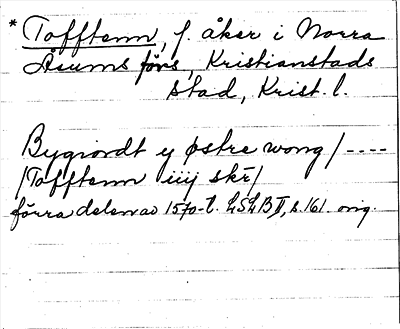 * Tofftenn, f. åker i Norra
Åsums förs, Kristianstads
stad, Krist. l.
Bygiordt y østre wong / ----
/ Tofftenn iiij skr /
förra delen av 1570-t. LSLB II, s. 161. orig.